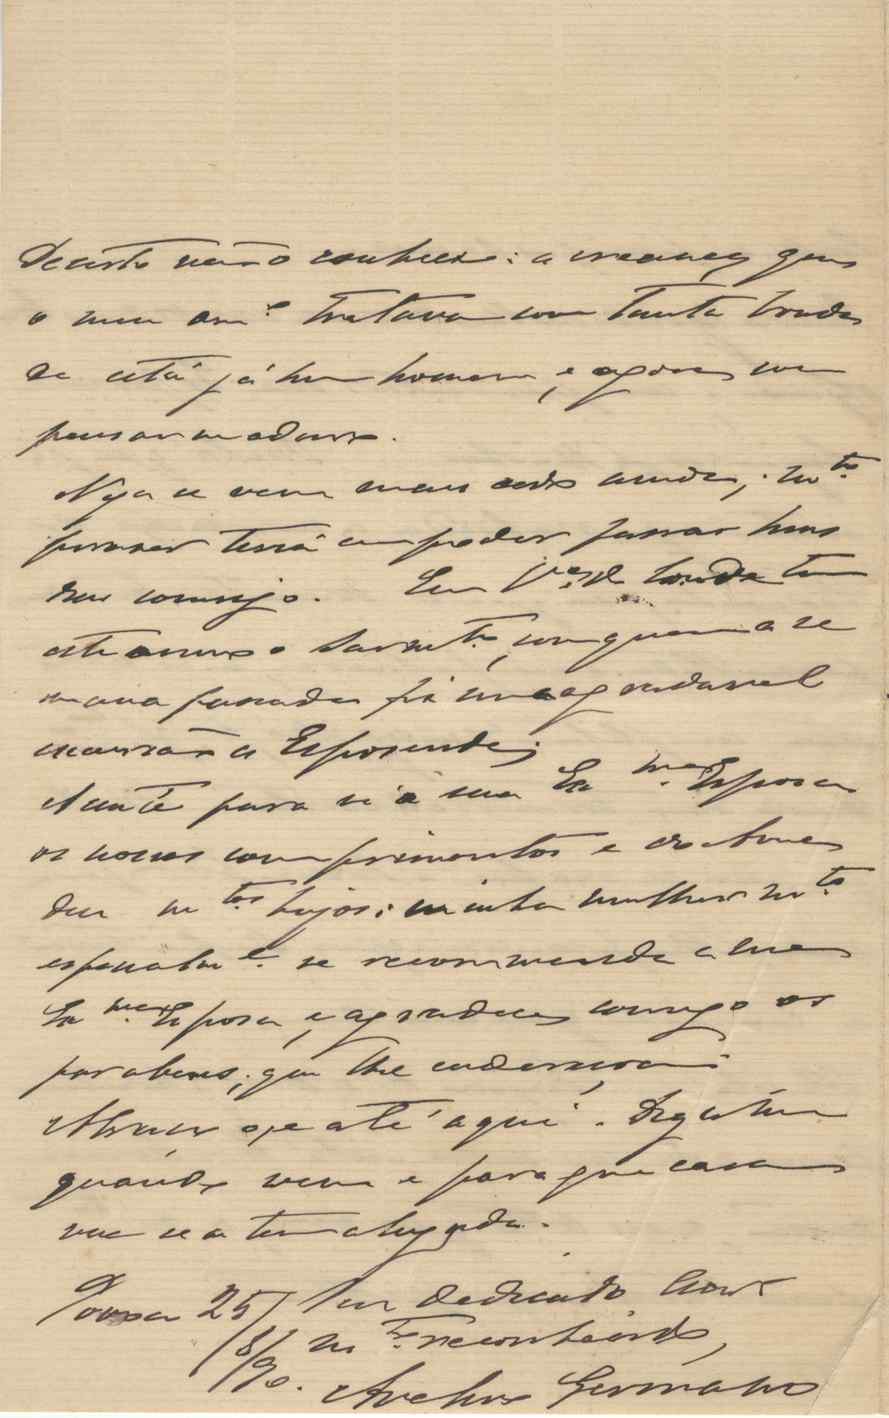 Decerto não o conhece: a creança que
o meu am.º tratava com tanta bonda
de está já hum homem, e agora com
pensar maduro.
Veja se vem mais cedo ainda; m.to
praser terá em poder passar huns
dias comsigo. Em V.ª do Conde tem
estado o
mana passada fiz uma agradavel
excursão a Esposende;
Acceite para si e sua Ex.ma Esposa
os nossos comprimentos e
dou m.tos beijos; minha mulher m.to
especialm.e se recommenda a sua
Ex.ma Esposa, e agradece comigo os
parabens, que lhe endereçam
Abraço-o até aqui. Diga-me
quando vem e para que casa
vae se a tem alugada.
Povoa 25/8/90. Seu dedicado
m.to reconhecido,
Germano